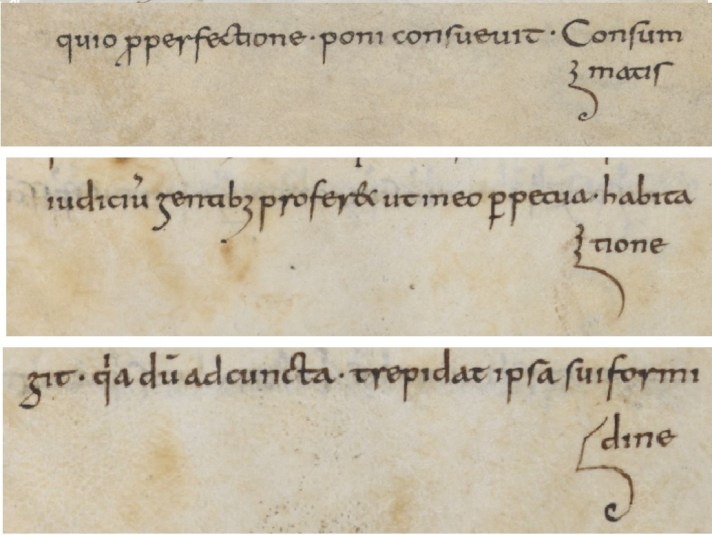 quio ꝓperfectione · poni consueuit · Consum
matis
iudiciū gentibꝫ proferꝫ& ut ineo ꝑpetua · habita
tione
git · q̇a dū adcuncta · trepidat ipsa sui formi
dine